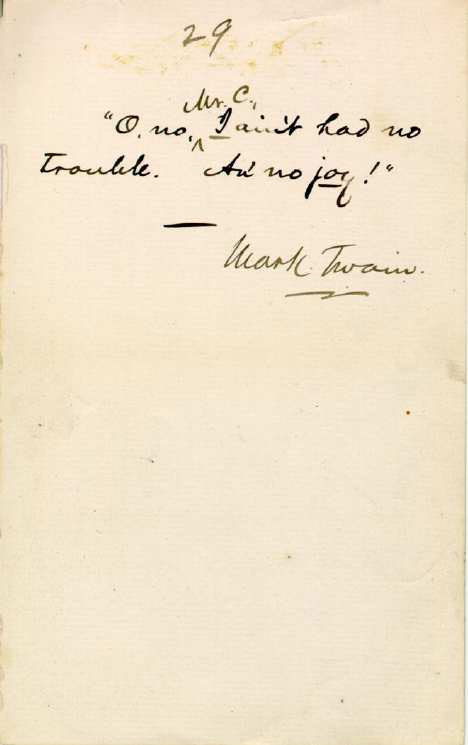 29
Mr. C.,
"O, no, ^ I ain't had no
trouble. An' no joy!"
Mark Twain.